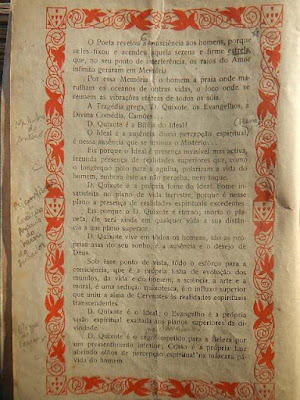 O Poeta revelou a consciência aos homens, porque
neles fixou e acendeu aquela serena e firme estrela
que, no seu ponto de interferência, os raios do Amor
infinito geraram em Memória
Por essa Memória, é o homem a praia onde ma-
rulham os oceanos de outras vidas, o foco onde se
reunem as vibrações etéreas de todos os sóis.
A Tragédia grega, D. Quixote, os Evangelhos, a
Divina Comédia, Camões...
D. Quixote é a Bíblia do Ideal!
O Ideal é a ausência duma percepção espiritual,
é nessa ausência que se insinua o Mistério.
Eis porque o Ideal é presença invisível mas activa,
fecunda presença de realidades superiores que, como
o longínquo polo para a agulha, polarizam a vida do
homem, embora este as não perceba, nem toque.
D. Quixote é a própria fome do Ideal, fome in-
satisfeita no plano de vida terrestre porque é nesse
plano a presença de realidades espirituais excedentes
Eis porque o D. Quixote é eterno; morto o pla-
neta, ele será ainda em qualquer vida a sua distân-
cia a um plano superior.
D. Quixote vive em todos os homens, são as pró-
prias asas do seu sonho, é a ausência e o desejo de
Deus.
Sob êsse ponto de vista, todo o esforço para a
consciência, que é a própria linha de evolução dos
mundos, da vida e do homem, a sciência, a arte e a
moral, é uma sedução quixotesca, é o influxo superior
que unia a alma de Cervantes às realidades espirituais
transcendentes.
D. Quixote é o Ideal; o Evangelho é a própria
visão espiritual exaltada aos planos superiores da di-
vindade.
D. Quixote é o ergue-se patético para a Beleza por
um pressentimento interior; Cristo é a própria Luz
abrindo olhos de percepção espiritual na máscara pá-
vida do homem.